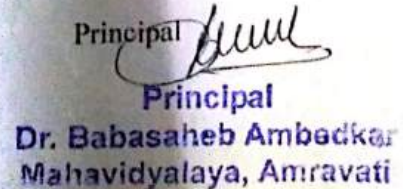 Principal
Principal
Dr. Babasaheb Ambedkar
Mahavidyalaya, Amravati